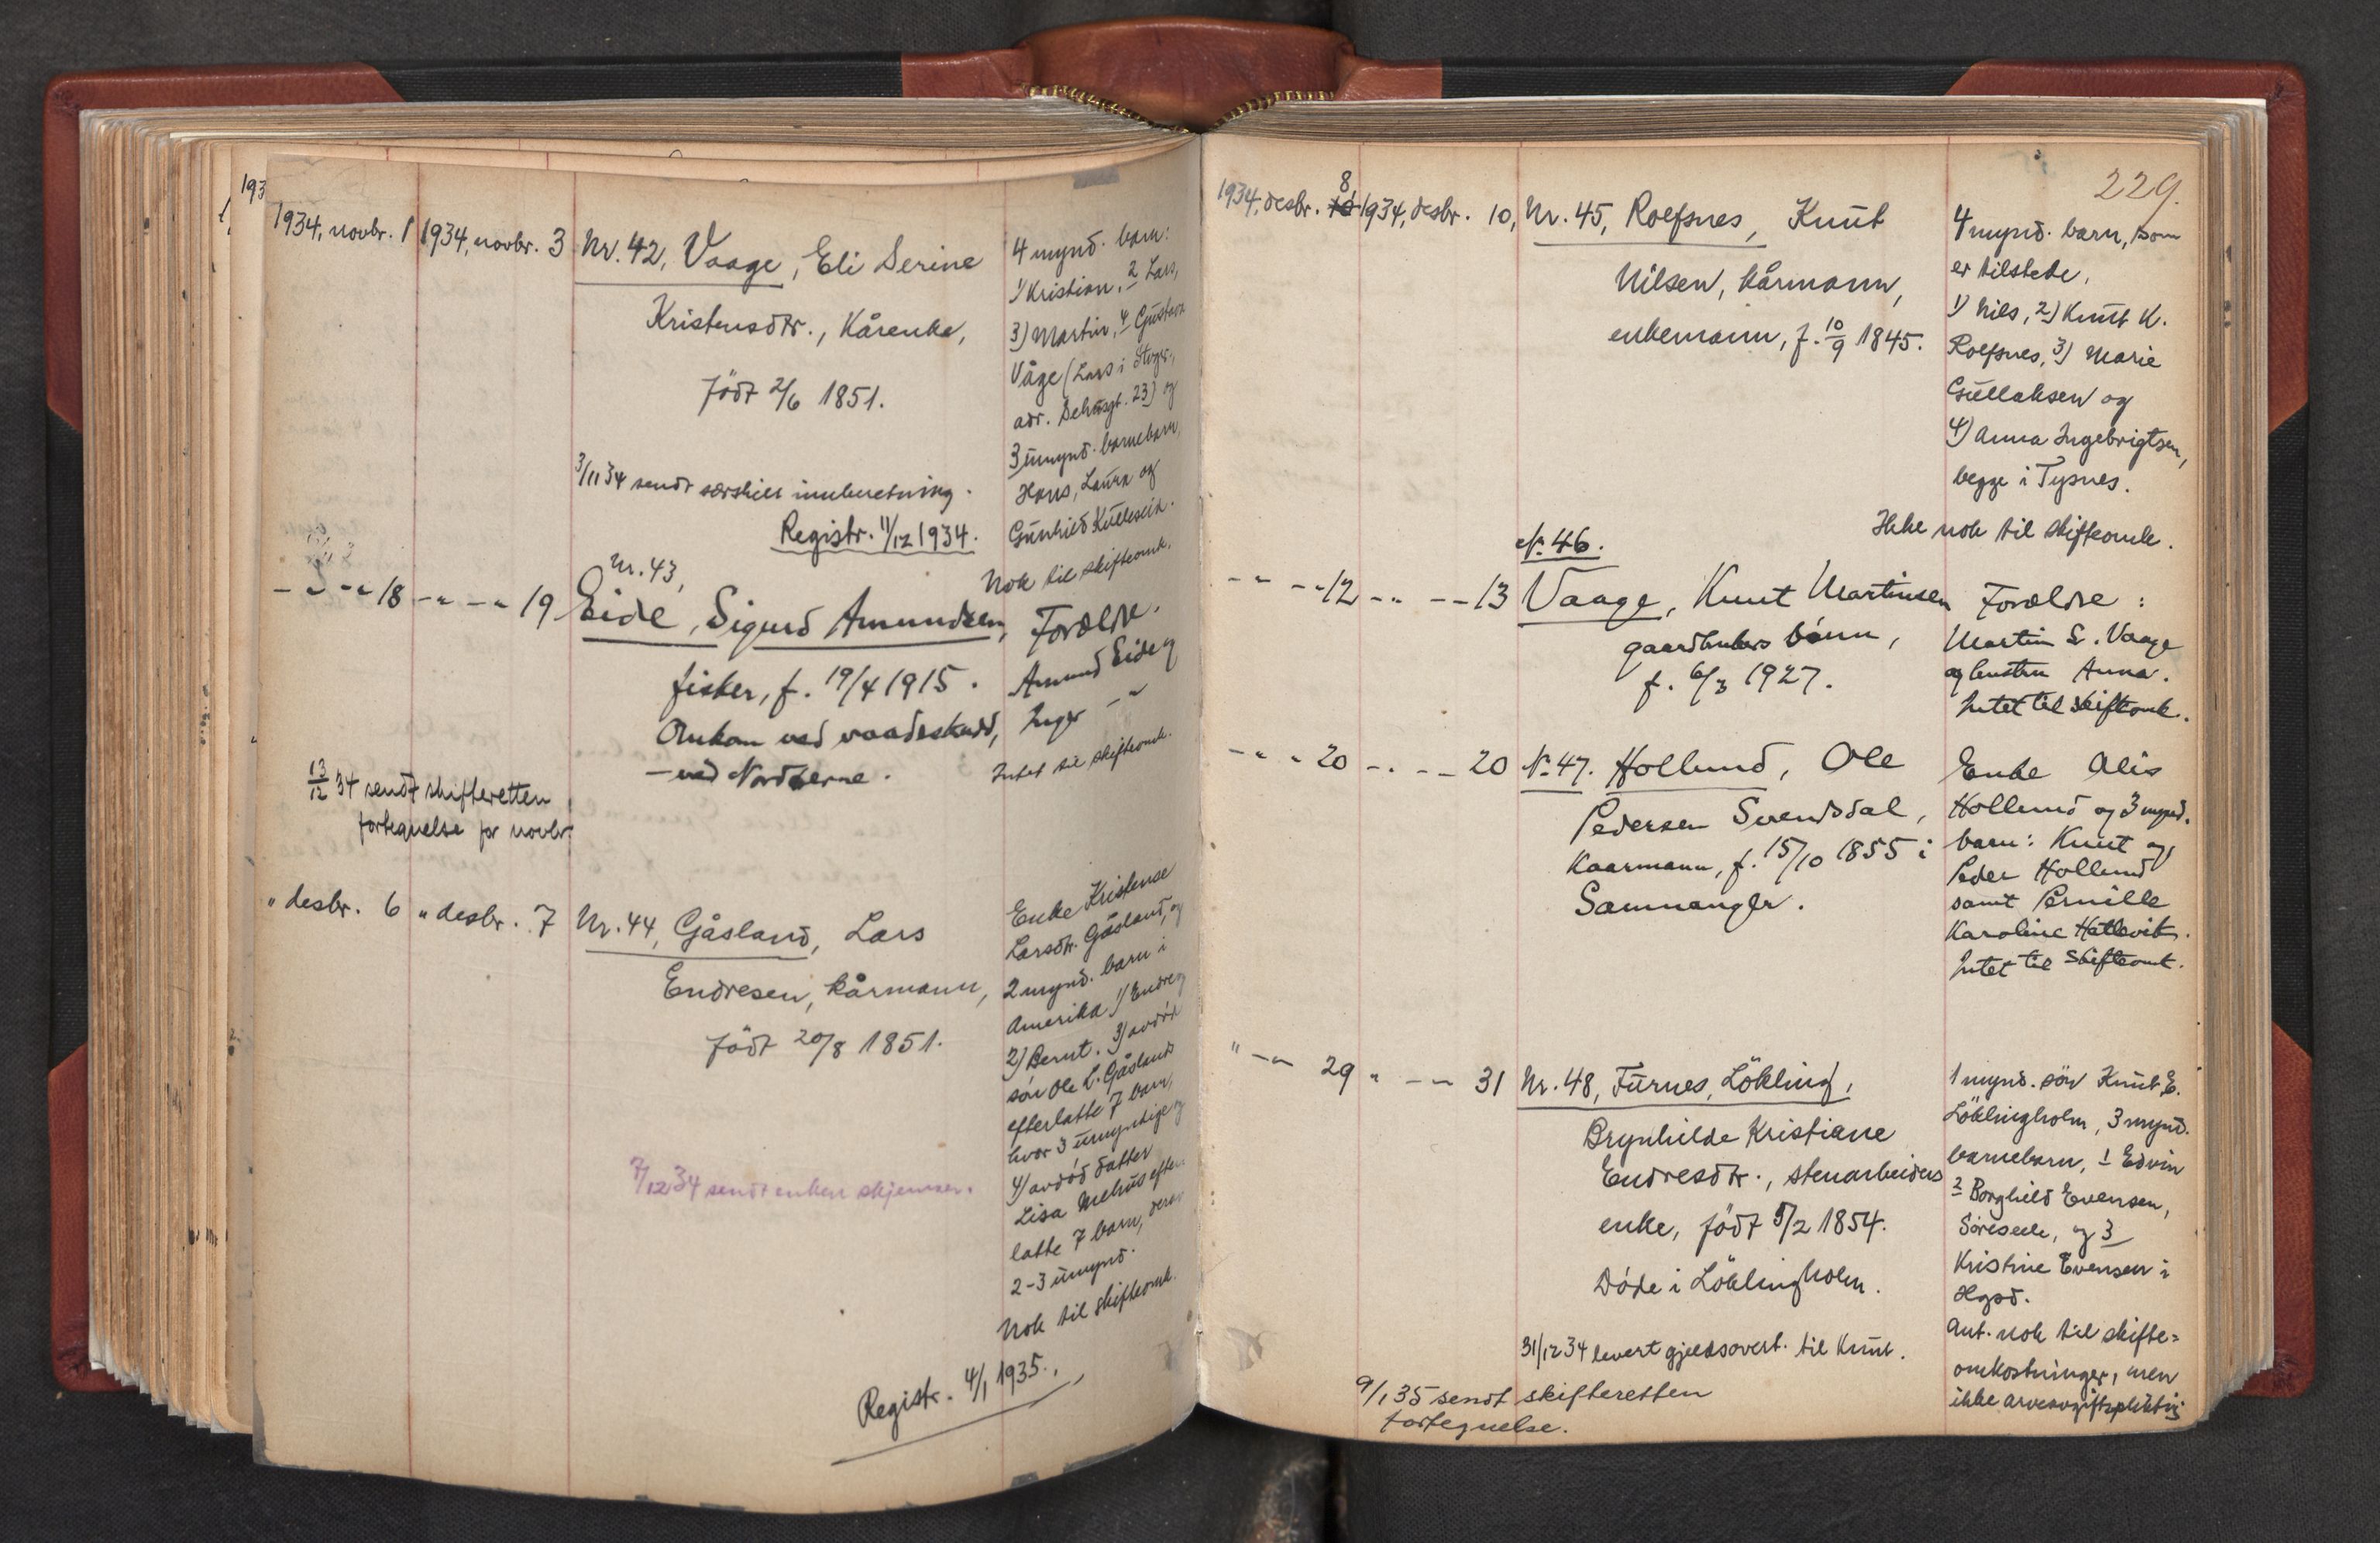 193
1934, novbr. 1 1934, novbr. 3 Nr. 42, Vaage, Eli Serine
Kristensdtr., Kårenke,
födt 2/6 1851.
3/11 34 sendt særskilt innberetning.
Registr. 11/12 1934.
4 mynd. barn:
1) Kristian, 2 Lars,
3) Martin, 4 Gustava
Våge (Lars i
adr. 23) og
3 umynd. barnebarn,
Hans, Laura og
Gunhild Kulleseid.
Nok til skifteomk.
- " - " 18 - " - " 19 Nr. 43,
Eide, Sigurd Amundsen,
fisker, f. 19/4 1915.
Omkom ved vaadeskudd,
- ved Nordöerne.
Forældre.
Amund Eide og
Inger - "
Intet til skifteomk.
13/12 34 sendt skifteretten
fortegnelse for novbr.
" desbr. 6 " desbr. 7 Nr. 44, Gåsland, Lars
Endresen, kårmann,
födt 20/8 1851.
7/12 34 sendt enken skjemaer.
Enke Kristense
Larsdtr. Gåsland, og
2 mynd. barn i
Amerika 1) Endre og
2) Bernt. 3) avdöd
sön Ole L. Gåsland
efterlatte 7 barn,
hvor 3 umyndige og
4) avdöd datter
Lisa Mehus efter
latte 7 barn, derav
2-3 umynd.
Nok til skifteomk.
Registr. 4/1 1935.
229.
8
1934, desbr. 10 1934, desbr. 10, Nr. 45, Rolfsnes, Knut
Nilsen, kårmann,
enkemann, f. 10/9 1845.
4 mynd. barn, som
er tilstede,
1) Nils, 2) Knut K.
Rolfsnes, 3) Marie
Gullaksen og
4) Anna Ingebrigtsen,
begge i Tysnes.
Ikke nok til skifteomk.
No. 46.
- " - " 12 - " - - 13 Vaage, Knut Martinsen
gaardbrukers barn,
f. 6/3 1927.
Forældre:
Martin S. Vaage
og hustru Anna.
Intet til skifteomk.
- " - 20 - " - - 20 No. 47. Hollund, Ole
Pedersen Svendsdal,
Kaarmann, f. 15/10 1855 i
Samnanger.
Enke Alis
Hollund og 3 mynd.
barn: Knut og
Peder Hollund
samt Pernille
Karoline Hatlevik.
Intet til skifteomk.
" - " 29 " - " 31 Nr. 48, Furnes, Lökling,
Brynhilde Kristiane
Endresdtr., stenarbeiders
enke, födt 5/2 1854.
Döde i Löklingholm.
31/12 34 levert gjeldsovert. til Knut.
1 mynd. sön Knut E.
Löklingholm, 3 mynd.
barnebarn, 1 Edvin
2 Borghild Evensen,
og 3
Kristine Evensen i
Hgsd.
Ant. nok til skifte=
omkostninger, men
ikke arveavgiftspliktig
9/1 35 sendt skifteretten
fortegnelse.